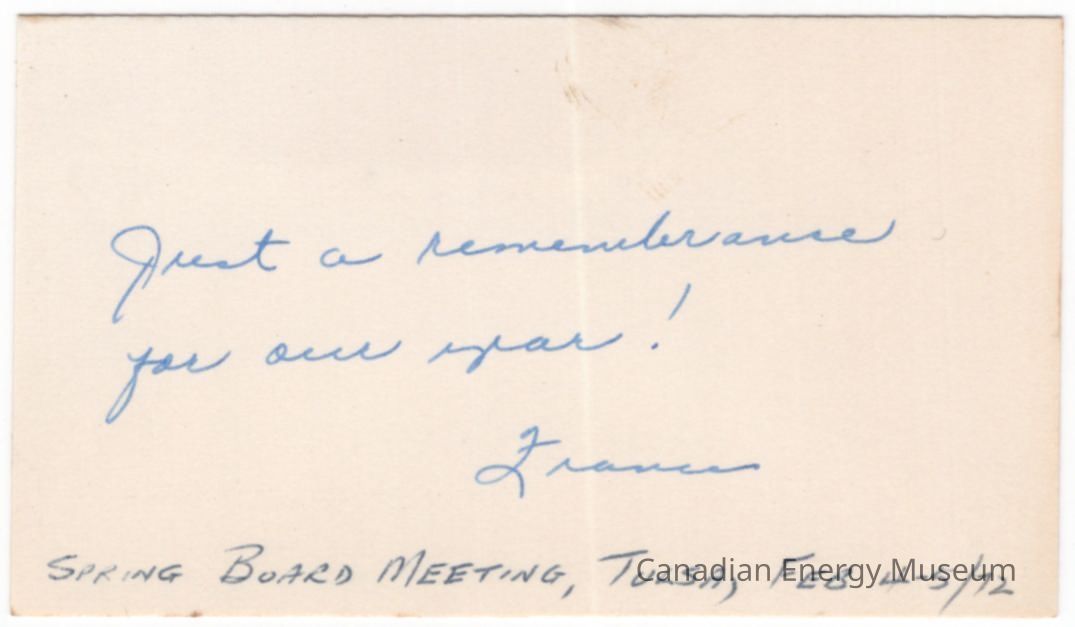 Just a remembranse
for our year!
Frances
SPRING BOARD MEETING, TULSA, FEB 4-5/72
Canadian Energy Museum